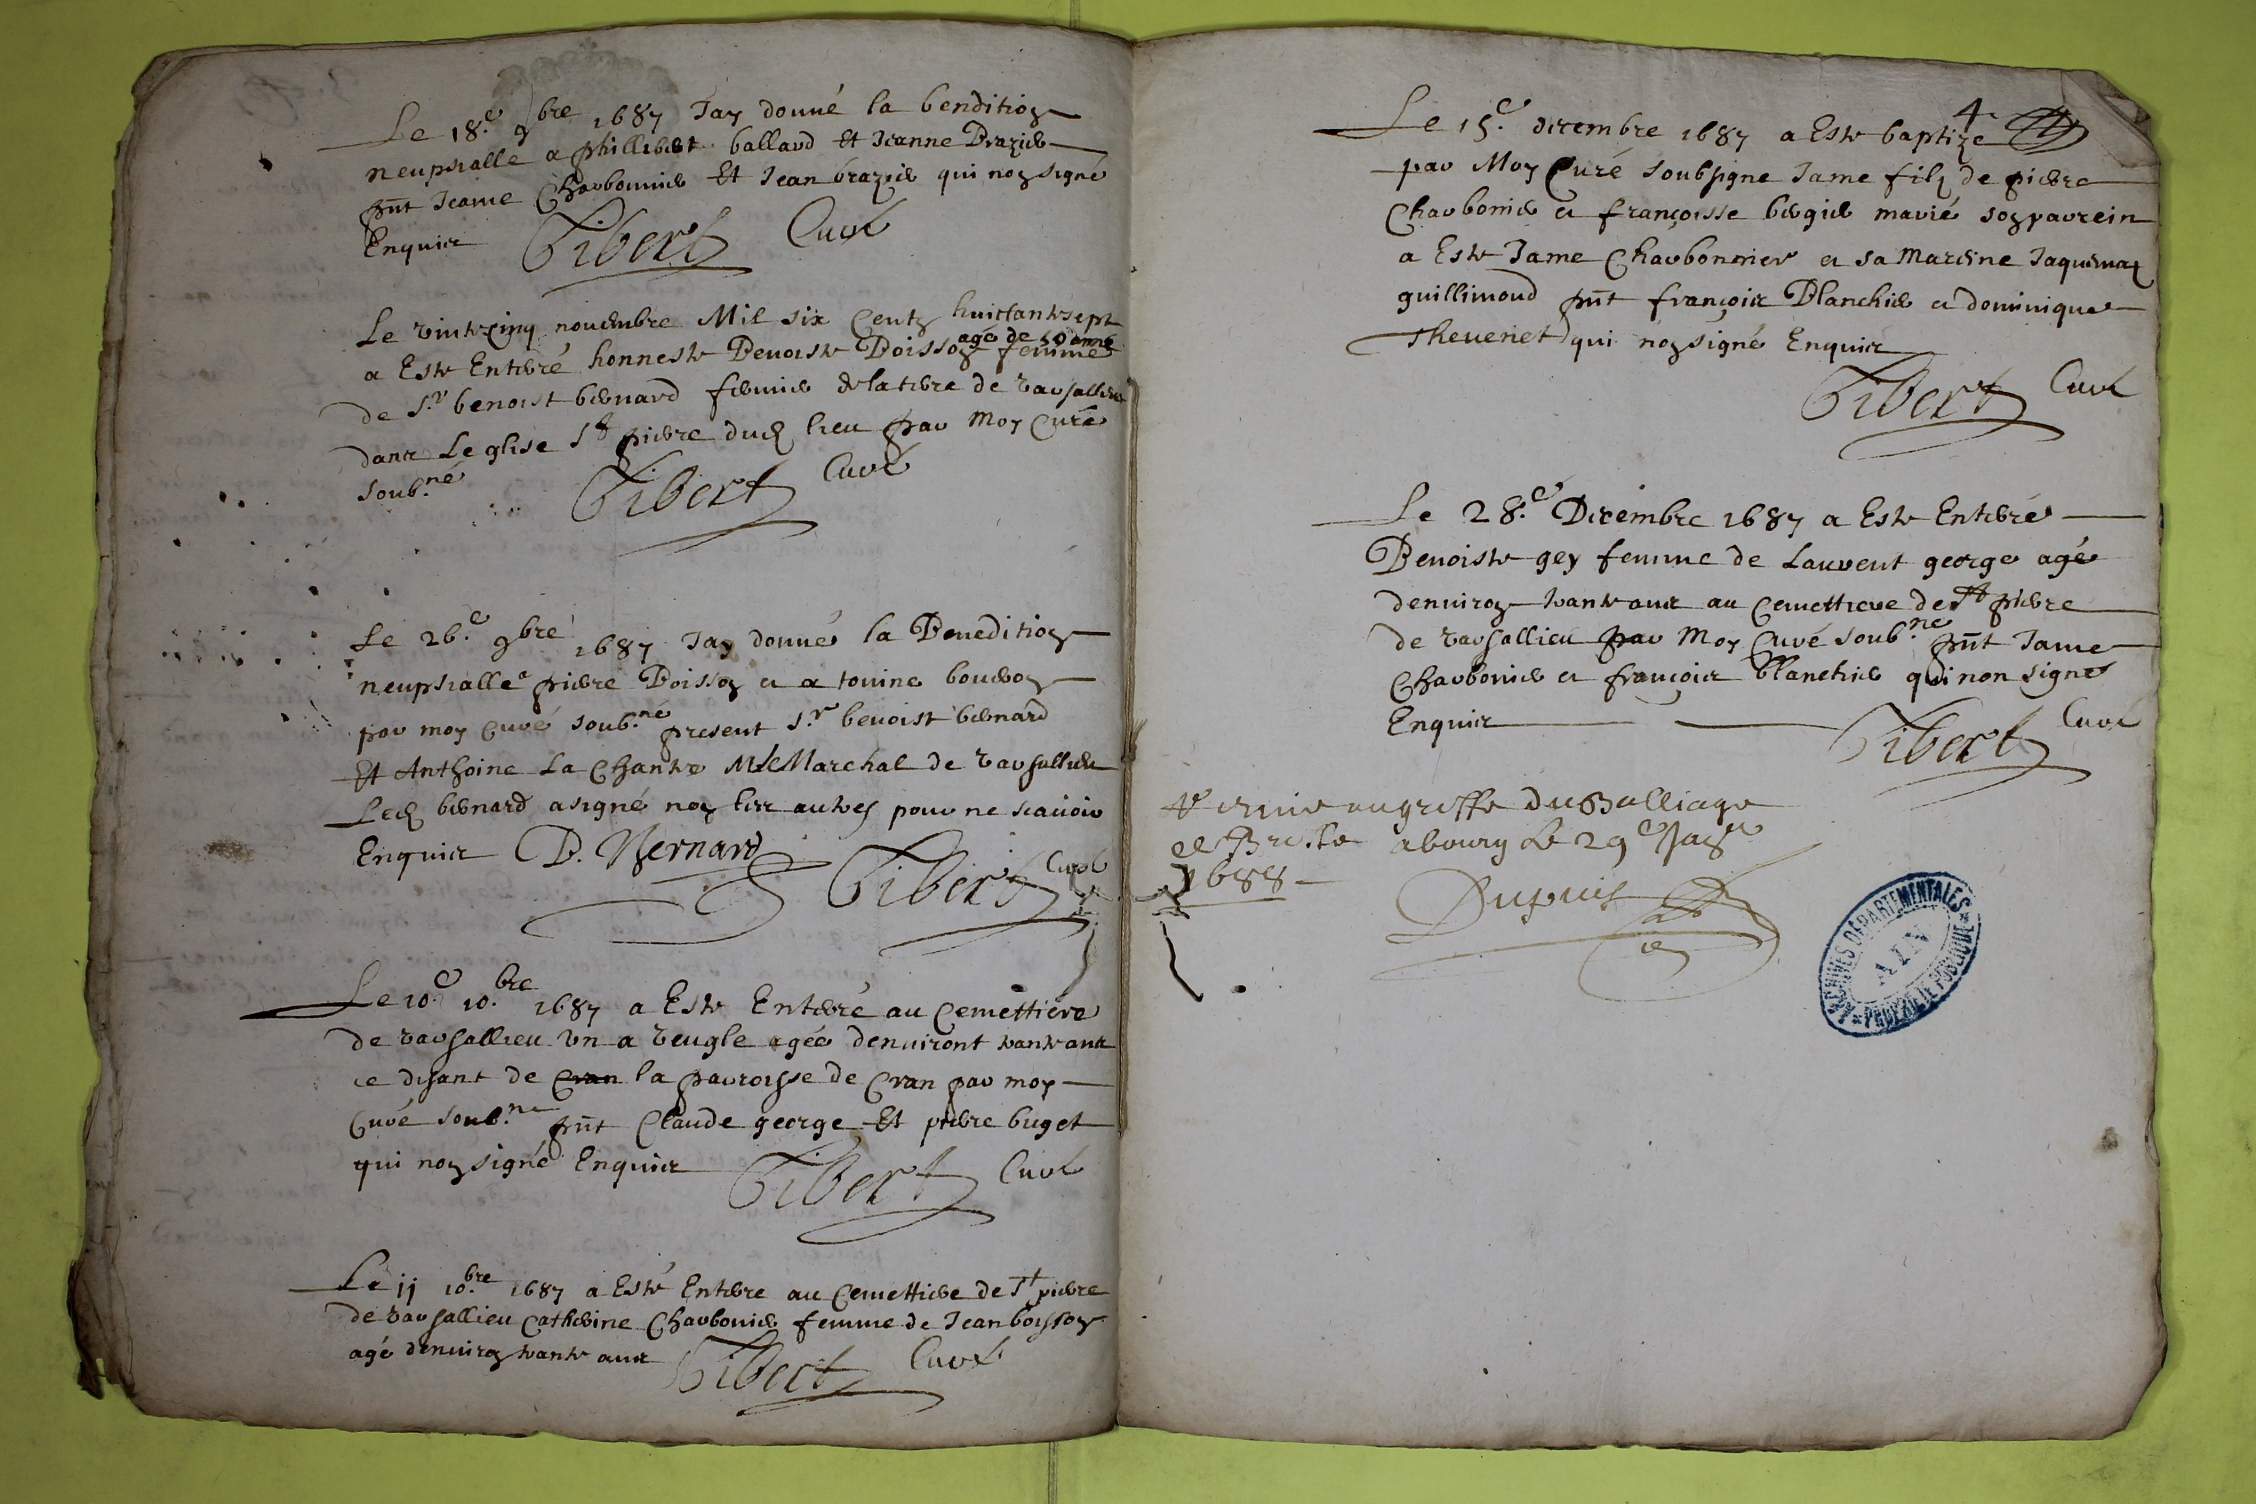 Le 18.e 9bre 1687 Jay donné la bendition
neupsialle a phillibert ballard Et Jeanne Brazier
pnt Jeanne Charbonnier Et Jean brazier qui non signé
Enquis Gibert Curé
Le vintcinq novembre Mil six Cents huittantsept
agé de 50 anne
a Esté Enterré honneste Benoiste Boisson femme
de Sr benoist bernard fermier de la terre de varsallieu
dans Leglise St pierre dud lieu par Moy Curé
soub.né Gibert Curé
Le 26.e 9bre 1687 Jay donné la Benedition
neupsialle a pierre Boisson et a touine
par moy Curé soub.né present Sr benoist bernard
Et Anthoine La Chante Me Marechal de varsallieu
Led bernard a signé non les autres pour ne scavoir
Enquis B. Bernard Gibert Curé
Le 10.e 10.bre 1687 a Esté Enterré au Cemettiere
de varsallieu Un a veugle agée denviront trante ans
ce disant de Cran la parroisse de Cran par moy
Curé soub.né pnt Claude george Et pierre buget
qui non signé Enquis Gibert Curé
Le 11 10.bre 1687 a Esté Enterre au Cemettiere de St pierre
de varsallieu Catherine Charbonier femme de Jean boisson
agé denviron trante ans Gibert Curé
4
Le 15.e decembre 1687 a Este baptize
par Moy Curé soubsigne Jame filz de pierre
Charbonier et françoisse bergier marié son parrein
a Este Jame Charbonnier et sa Mareine Jaquemaz
guillimoud pnt françois Blanchier et dominique
Thevenet qui non signé Enquis
Gibert Curé
Le 28.e Decembre 1687 a Este Enterré
Benoiste gey femme de Laurent george agé
denviron trante ans au Cemettiere de St pierre
de varsallieu par Moy Curé soub.né pnt Jame
Charbonier et françois Blanchier qui non signé
Enquis
Gibert Curé
au greffe du Balliage
de Bresse a bourg Le 29e
1688
Dupuis
ARCHIVES DÉPARTEMENTALES
AIN